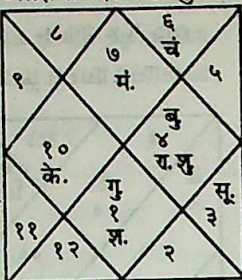 ८
६
चं
७
मं.
९
५
बु
४
रा. शु
१०
के.
गु
१
श.
सू.
३
११
१२
२